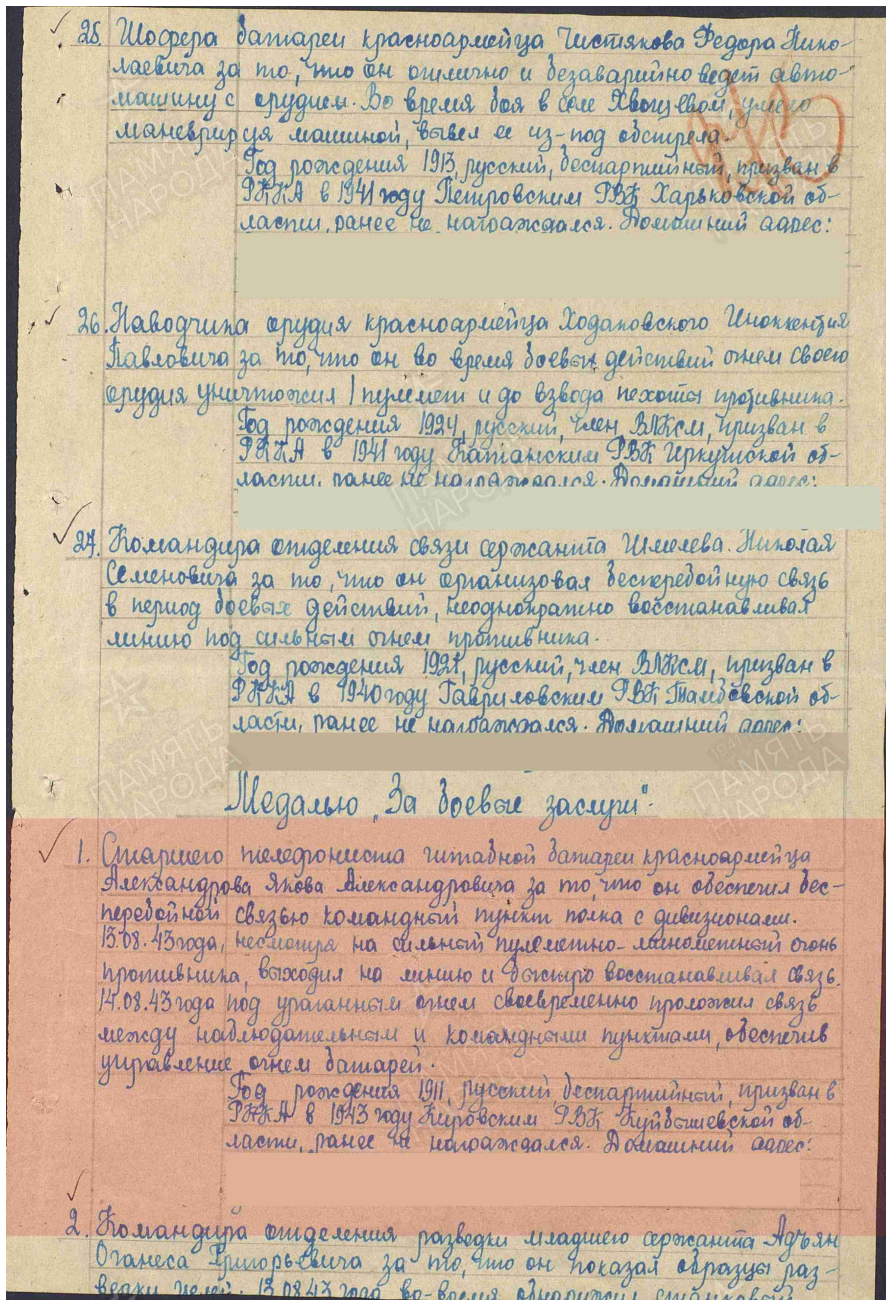 25. Шофера батареи красноармейца Чистякова Федора Нико-
лаевича за то, что он отлично и безаварийно ведет авто-
машину с орудием. Во время боя в селе Хвощевом, умело
маневрируя машиной, вывел ее из-под обстрела.
Год рождения 1913, русский, беспартийный, призван в
РККА в 1941 году Петровским РВК Харьковской об-
ласти, ранее не награждался. Домашний адрес:
26. Наводчика орудия красноармейца Ходаковского Иннокентия
Павловича за то, что он во время боевых действий огнем своего
орудия уничтожил 1 пулемет и до взвода пехоты противника.
Год рождения 1924, русский, член ВЛКСМ, призван в
РККА в 1941 году РВК Иркутской об-
ласти, ранее не награждался. Домашний адрес:
27. Командира отделения связи сержанта Шмелева Николая
Семеновича за то, что он организовал бесперебойную связь
в период боевых действий, неоднократно восстанавливал
линию под сильным огнем противника.
Год рождения 1921, русский, член ВЛКСМ, призван в
РККА в 1940 году Гавриловским РВК Тамбовской об-
ласти, ранее не награждался. Домашний адрес:
Медалью „За боевые заслуги".
1. Старшего телефониста штабной батареи красноармейца
Александрова Якова Александровича за то, что он обеспечил бес-
перебойной связью командный пункт полка с дивизионами.
13.08.43 года, несмотря на сильный пулеметно-минометный огонь
противника, выходил на линию и быстро восстанавливал связь.
14.08.43 года под ураганным огнем своевременно проложил связь
между наблюдательным и командными пунктами, обеспечив
управление огнем батарей.
Год рождения 1911, русский, беспартийный, призван в
РККА в 1943 году Кировским РВК Куйбышевской об-
ласти, ранее не награждался. Домашний адрес:
2. Командира отделения разведки младшего сержанта Адъян
Оганеса Григорьевича за то, что он показал образцы раз-
ведки целей. 13.08.43 года во-время обнаружил станковый
ПАМЯТЬ НАРОДА